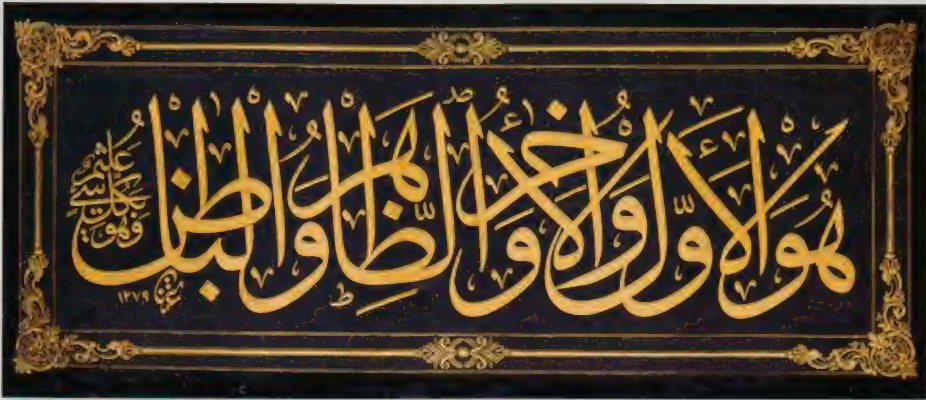 هُوَ الْأَوَّلُ وَالْآخِرُ وَالظَّاهِرُ وَالْبَاطِنُ
وَهُوَ بِكُلِّ شَيْءٍ عَلِيمٌ
١٢٧٩